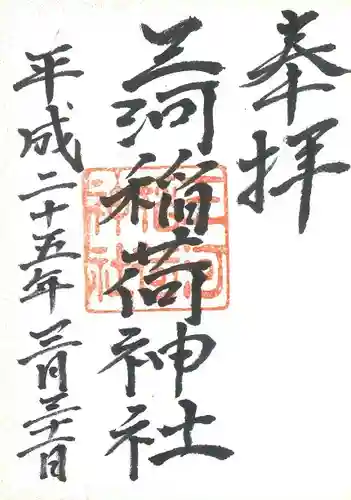 奉拝
三河稲荷神社
平成二十五年三月三十一日